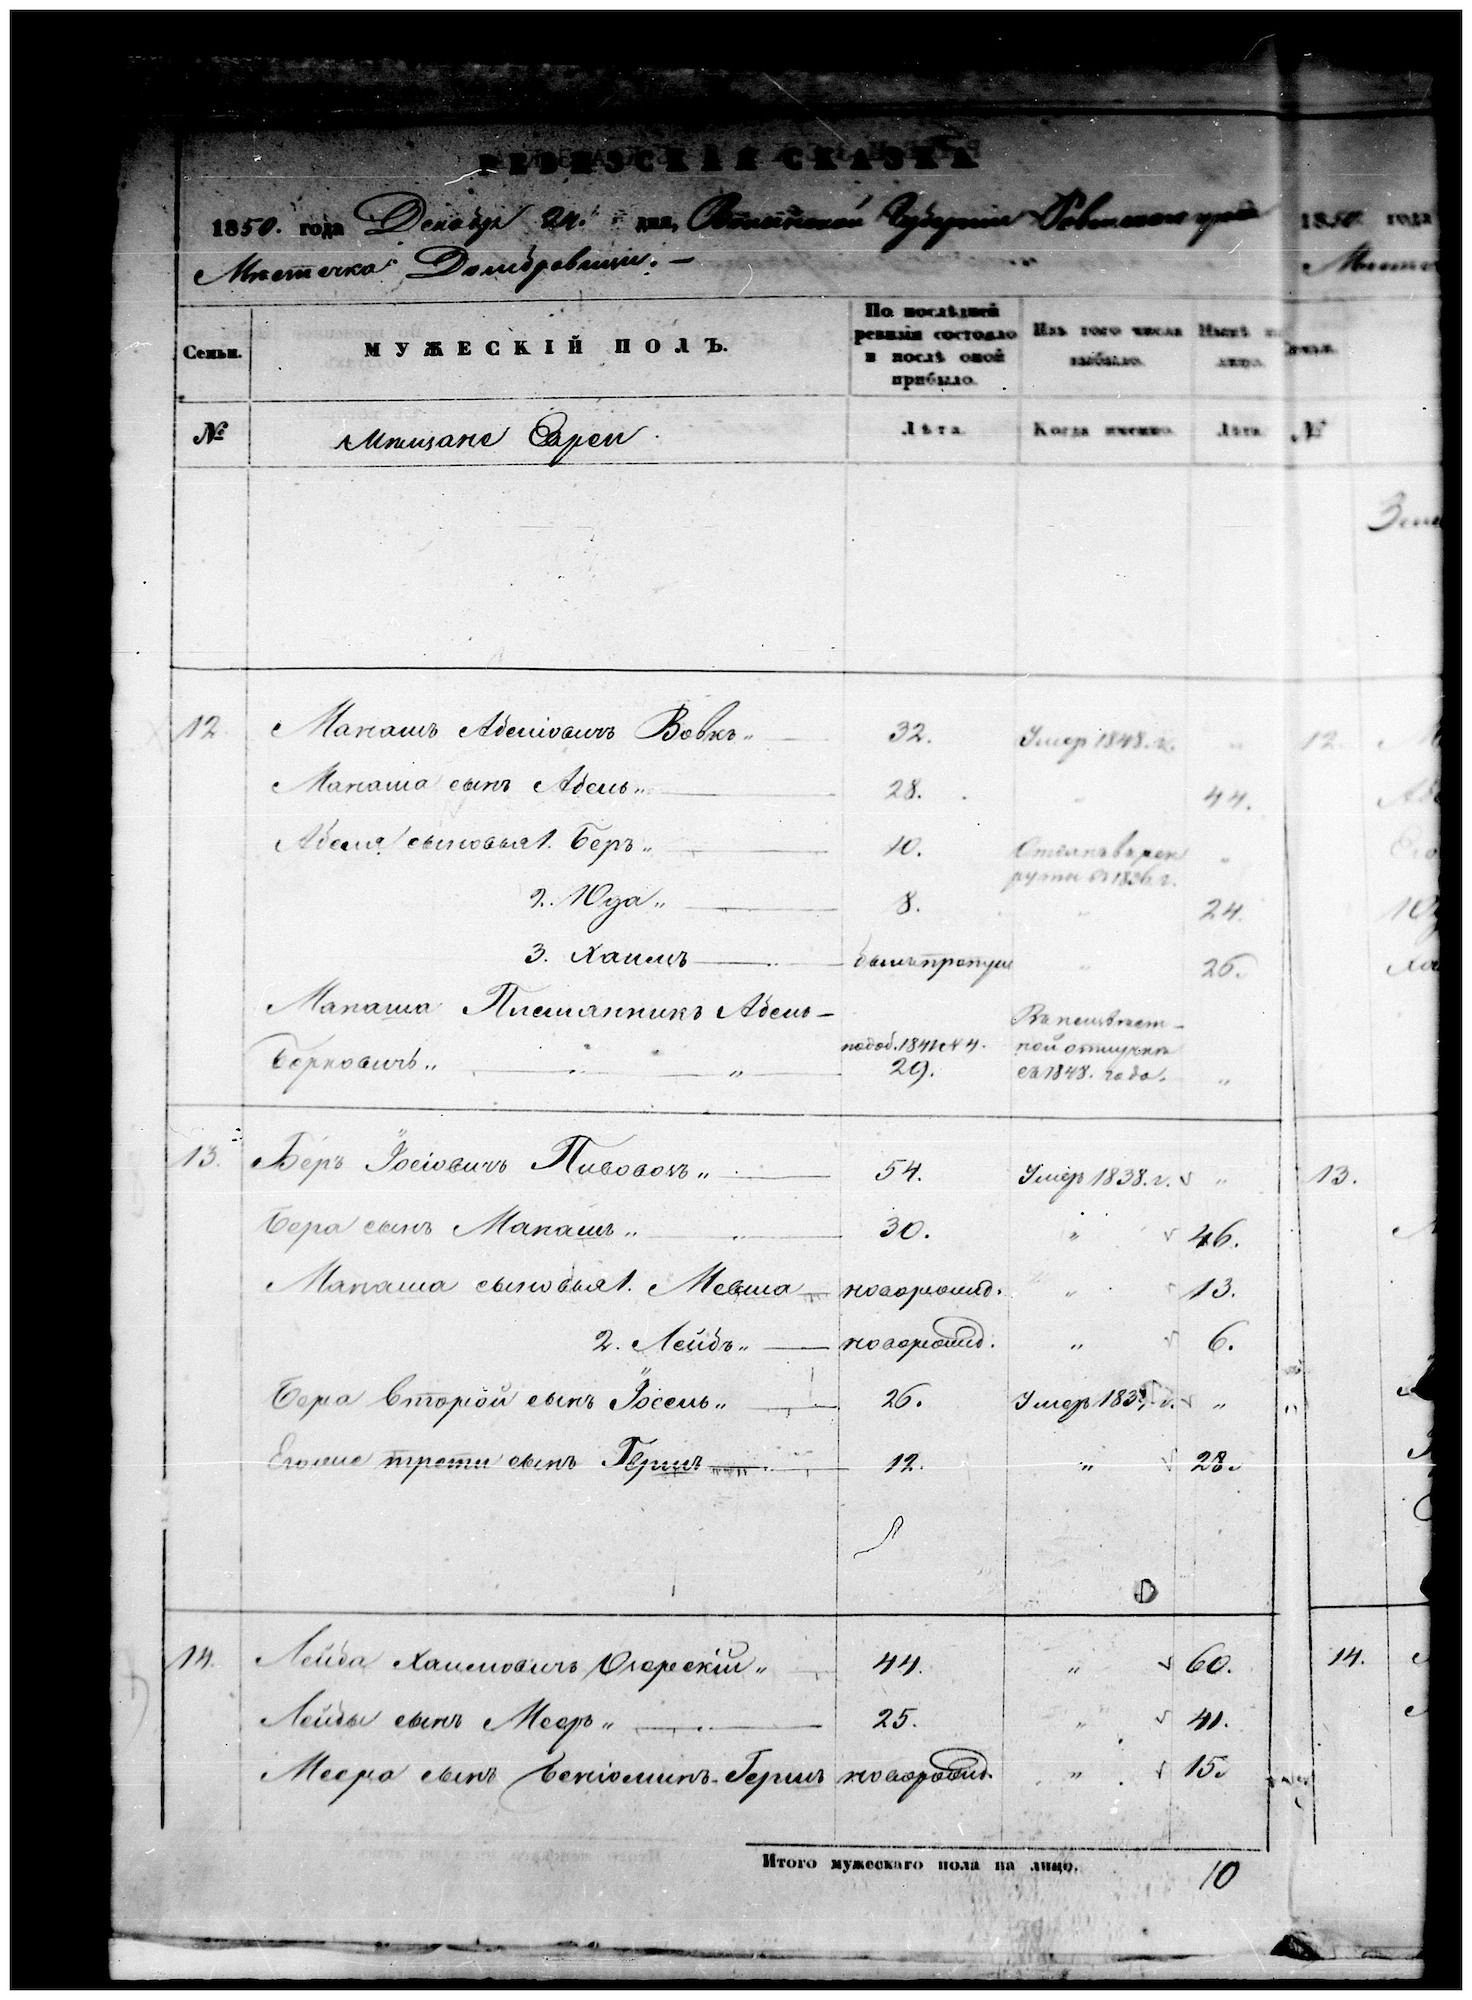 РЕВИЗСКАЯ СКАЗКА
1850. года Декабря 24. дня, Волынской Губернии Ровенскаго уезда
Мѣстечка Домбровицы. –
Семьи.
МУЖЕСКІЙ ПОЛЪ.
По послѣдней ревизіи состояло и послѣ оной прибыло.
Изъ того числа выбыло.
Нынѣ на лицо.
№
Мѣщане Евреи
Лѣта.
Когда именно.
Лѣта.
12. Манашъ Абеліовичъ Вовкъ 32. Умер 1848. г. "
Манаша сынъ Абель 28. " 44.
Абеля сыновья 1. Беръ 10. Отданъ въ рек
руты въ 1836 г. "
2. Юда 8. " 24.
3. Хаимъ былъ пропущ " 26.
Манаша Племянникъ Абель –
Берковичъ " " подоб. 1841 № 4. 29. Въ неизвѣст-
ной отлучкѣ
съ 1848. года. "
13. Беръ Іосіовичъ Пивовокъ 54. Умеръ 1838. г. "
Бера сынъ Манашъ 30. " 46.
Манаша сыновья 1. Мевша новорожд. " 13.
2. Лейбъ новорожд. " 6.
Бера второй сынъ Іосель 26. Умеръ 183 г. "
Его же трети сынъ Гершъ 12. " 28.
14. Лейба Хаимовичъ Озерскій 44. " 60.
Лейбы сынъ Меер 25. " 41.
Меера сынъ Беніоминъ-Гершъ новорожд. " 15.
Итого мужескаго пола на лицо. 10
1850 года
12.
13.
14.